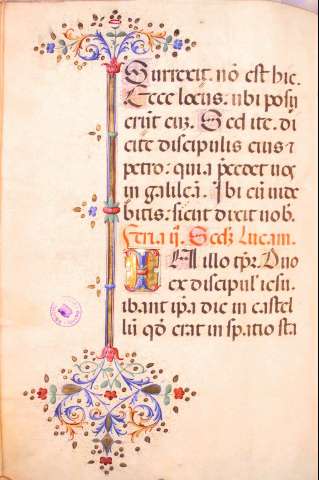 Surrexit. nō est hic.
Ecce locus. ubi posu
erūt eū. Sed ite. di
cite discipulis eius ⁊
petro: quia p̄cedet uos
in galileā. Ibi eū uide
bitis: sicut dixit uob̄.
Feria ij. Secd̄z Lucam.
IN illo tp̄r. Duo
ex discipul' iesu.
ibant ip̄a die in castel
lū qd̄ erat in spatio sta